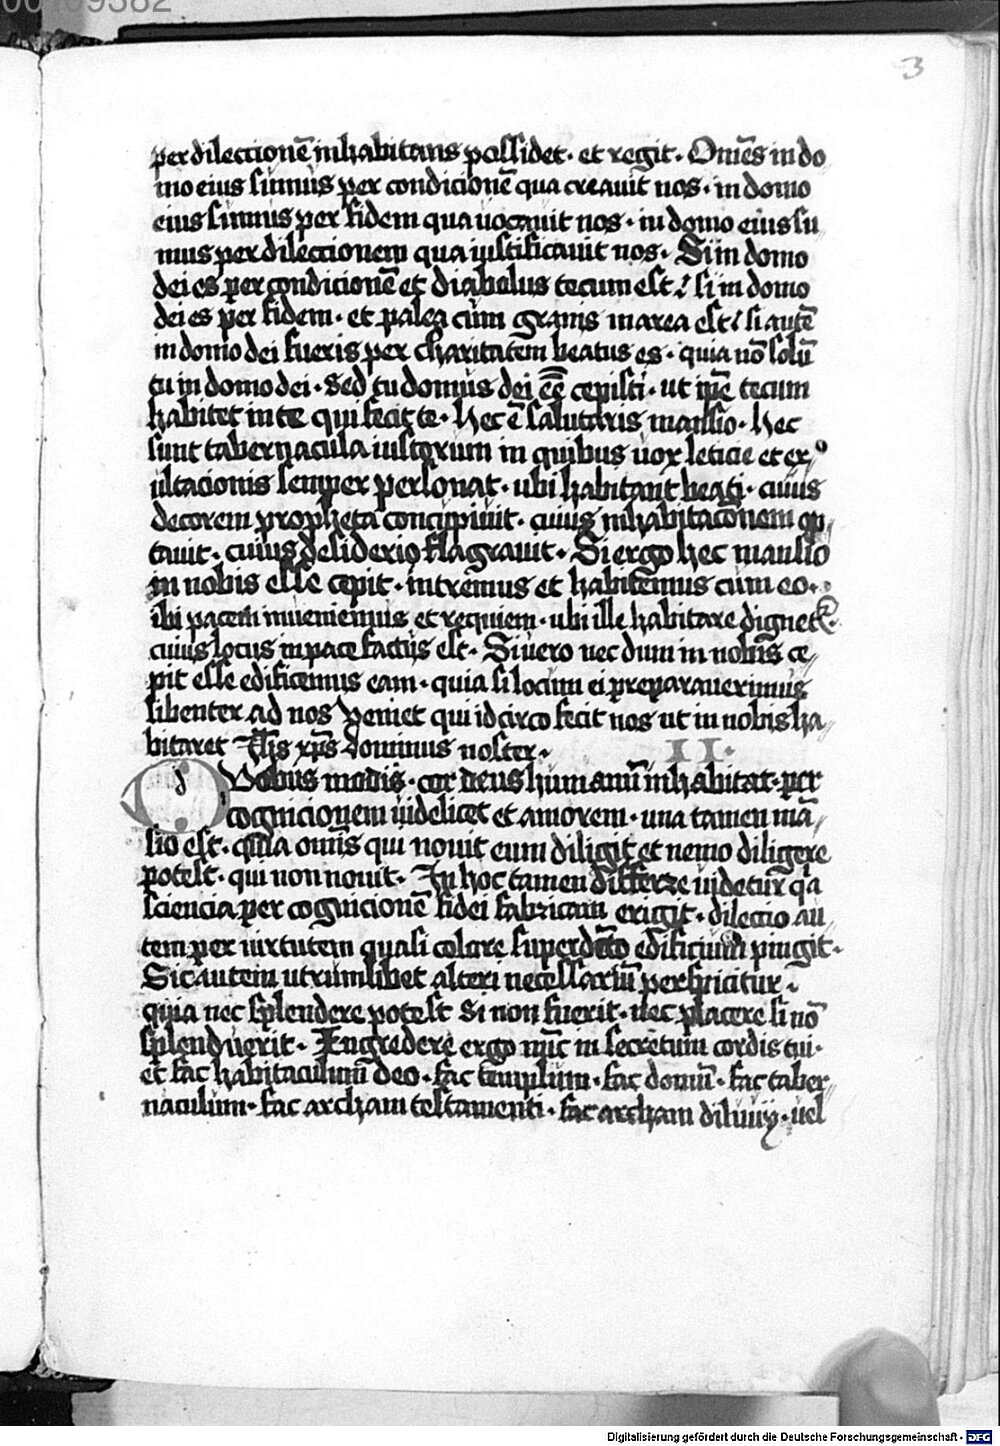 00109382
3
per dilectionē inhabitans possidet · et regit · Om̄es in do
mo eius sumus per condicionē qua creauit nos · in domo
eius sumus per fidem qua uocauit nos · in domo eius su
mus per dilectionem qua iustificauit nos · Si in domo
dei es per condicionē et diabolus tecum est / si in domo
dei es per fidem · et palea cum granis in area est / si autē
in domo dei fueris per charitatem beatus es · quia nō solū
tu in domo dei · Sed tu domus dei eē̄ cepisti · ut ip̄e tecum
habitet in te qui fecit te · Hec ē salutaris mansio · hec
sunt tabernacula iustorum in quibus uox leticie et ex
ultacionis semper personat · ubi habitant beati · cuius
decorem propheta concupiuit · cuius inhabitacōnem op
tauit · cuius desiderio flagrauit · Si ergo hec mansio
in nobis esse cepit · intremus et habitemus cum eo ·
ibi pacem inueniemus et requiem · ubi ille habitare dignet᷑ ·
cuius locus in pace factus est · Si uero nec dum in nobis ce
pit esse edificemus eam · quia si locum ei preparauerimus
libenter ad nos veniet qui idcirco fecit nos ut in nobis ha
bitaret xp̄s dominus noster ·
II ·
d Vobus modis · cor deus humanū inhabitat · per
cognicionem uidelicet et amorem · una tamen mā
sio est · quia omīs qui nouit eum diligit et nemo diligere
potest · qui non nouit · In hoc tamen differre uidetur qa
sciencia per cognicionē fidei fabricam erigit · dilectio au
tem per uirtutem quasi colore superd̄cto edificium pingit ·
Sic autem utrumlibet alteri necessariū perspicitur
quia nec splendere potest si non fuerit · nec placere si nō
splenduerit · Ingredere ergo nūc in secretum cordis tui ·
et fac habitaculum deo · fac templum · fac domū · fac taber
naculum · fac archam testamenti · fac archam diluuij · uel
Digitalisierung gefördert durch die Deutsche Forschungsgemeinschaft - DFG